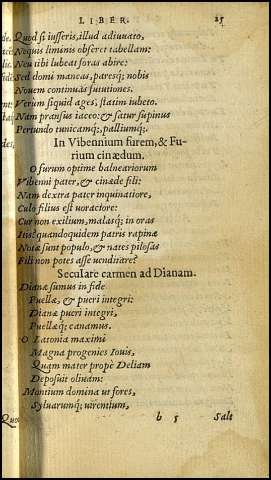 LIBER. 25
Quod si iusseris, illud adiuuato,
Nequis liminis obseret tabellam:
Neu tibi lubeat foras abire:
Sed domi maneas, paresq; nobis
Nouem continuas fututiones.
Verum siquid ages, statim iubeto.
Nam pransus iaceo: & satur supinus
Pertundo tunicamq;, palliumq;.
In Vibennium furem, & Fu-
rium cinædum.
O furum optime balneariorum
Vibenni pater, & cinæde fili:
Nam dextra pater inquinatiore,
Culo filius est uoraciore:
Cur non exilium, malasq; in oras
Itis? quandoquidem patris rapinæ
Notæ sunt populo, & nates pilosas
Fili non potes asse uenditare?
Seculare carmen ad Dianam.
Dianæ sumus in fide
Puellæ, & pueri integri:
Dianæ pueri integri,
Puellæq; canamus.
O Latonia maximi
Magna progenies Iouis,
Quam mater prope Deliam
Deposuit oliuam:
Montium domina ut fores,
Syluarumq; uirentium,
b 5 Salt